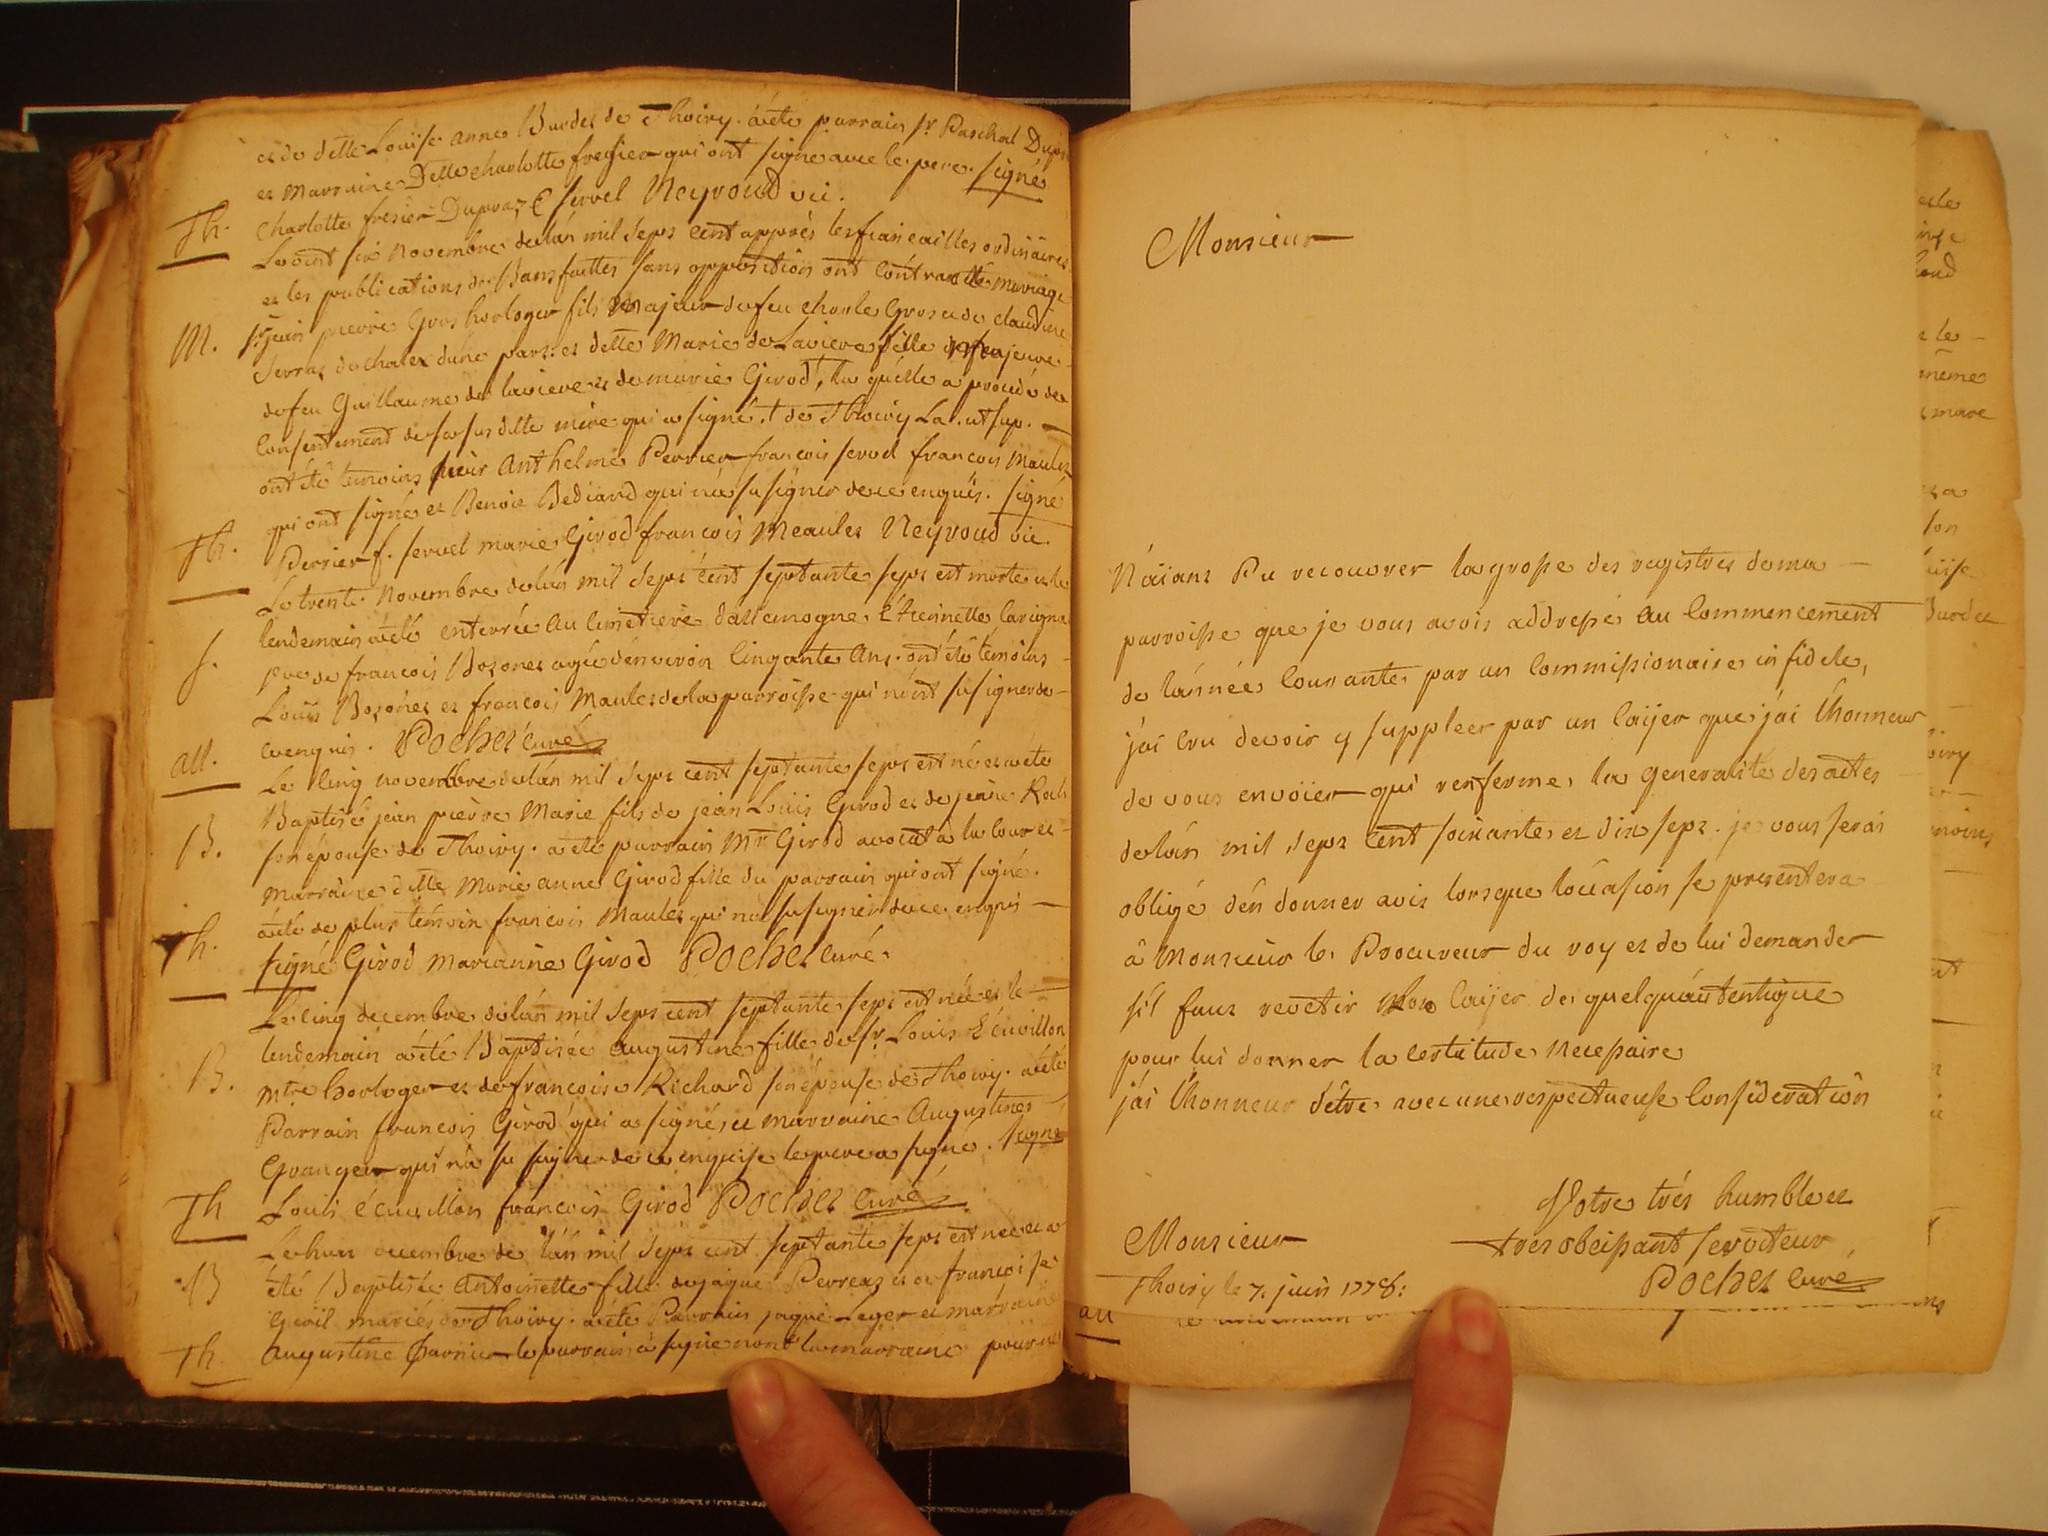 et de dlle Louise anne Burdet de Thoiry. a été parrain sr. Paschal
et Marraine Dlle charlotte fresier qui ont signé avec le pere. signé
Th.
charlotte fresier Dupraz servel Neyroud vic.
Le vint six Novembre de lán mil seps cent apprés les fiancailles ordinaires
et les publications de Bans faittes sans opposition ont contracté mariage
M.
sr. jean pierre Gros horloger fils majeur de feu charle Gros et de claudine
de chalex dune part: et dlle Marie de Laviere fille
de feu Guillaume de laviere et de marie Girod, la quélle a procédé de
Consentement de sa susditte mère qui a signé. de Thoiry La. ut sup.
ont été temoins sieur Anthelme Perrier françois servel francois Maulet
qui ont signé et Benoit Bediand qui na su signer de ce enquis. signé
Th.
Perrier f. servel marie Girod francois Meaulet Neyroud vic.
Le trente Novembre de lán mil seps cent septante seps est morte et le
lendemain a été enterrée au Cimetiere dallemogne Etiennette
J.
de francois Bozonet agée dénviron Cinqante Ans. ont été témoins
Louis Bozonet et francois Maulet de la parroisse qui nónt su signer de
ce enquis. Pochet curé
all.
Le Cinq novembre de lán mil seps cent septante seps est né et a été
Baptisé jean pierre Marie fils de jean Louis Girod et de jeane Roch
B.
son épouse de Thoiry. a été parrain Mr. Girod avocat a la Cour et
Marraine dlle Marie anne Girod fille du parrain qui ont signé.
a été de plus témoin francois Maulet qui na su signer de ce enquis
Th.
signé Girod Marianne Girod Pochet curé.
Le cinq decembre de lán mil seps cent septante seps est née et le
lendemain a été Baptisée augustine fille de sr. Louis Écuvillon
B.
mtre horloger et de francoise Richard son épouse de Thoiry. a été
Parrain francois Girod qui a signé et marraine Augustine
Granger qui na su signer de ce enquise le pere a signé. signé
Th
Louis écuvillon francois Girod Pochet curé
Le huit decembre de lán mil seps cent septante seps est née et a
B
été Baptisée Antoinette fille de jaque Perreaz et de francoise
mariés de Thoiry. a été Parrain jaque Leger et marraine
Th
augustine le parrain a signé non la marraine pour ne
Monsieur
N'áïant Pu recouvrer la grosse des registres de ma
parroisse que je vous avois addressé au Commencement
de lánnée Courante par un Commissionaire infidele,
jái cru devoir y suppléer par un Caÿer que jái Lhonneur
de vous envoïer qui renferme la generalité des actes
de lán mil seps cent soixante et dix seps. je vous serai
obligé dén donner avis lorsque lóccasion se presentera
á Monsieur le Procureur du roy et de lui demander
síl faut revetir mon Caÿer de quelquáutentique
pour lui donner la certitude necessaire
jái Lhonneur d'être avec une respectueuse Consideration
Votre trés humble et
Monsieur
tres obeissant serviteur
Thoiry le 7. juin 1778:
Pochet curé
all